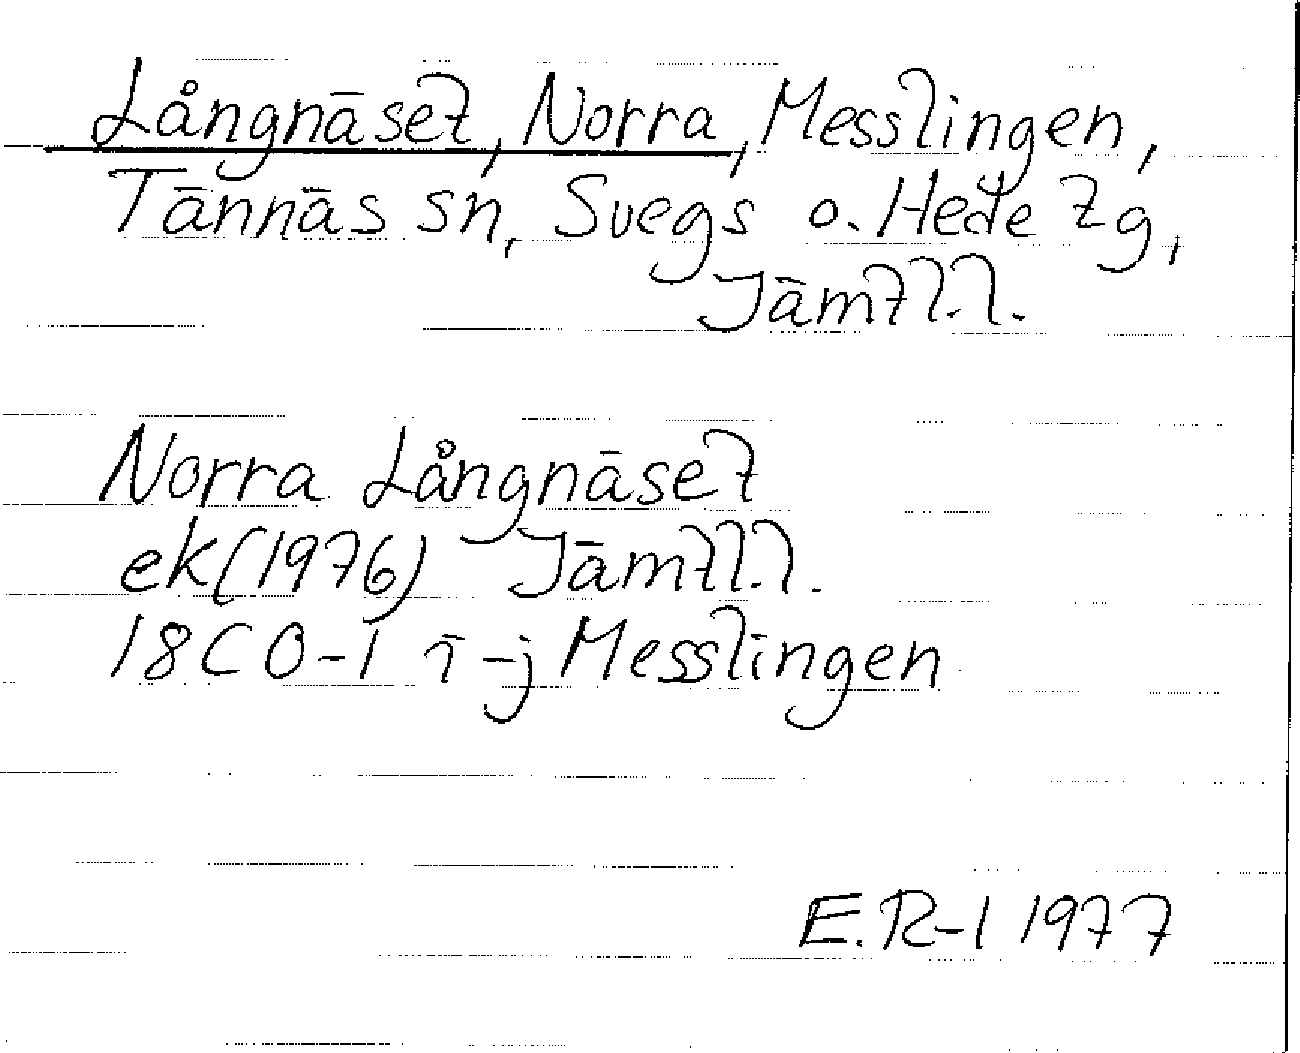 Långnäset, Norra, Messlingen,
Tännäs sn, Svegs o. Hede tg,
Jämtl.l.
Norra Långnäset
ek(1976) Jämtl.l.
18C 0-1 i-j Messlingen
E.R-l 1977